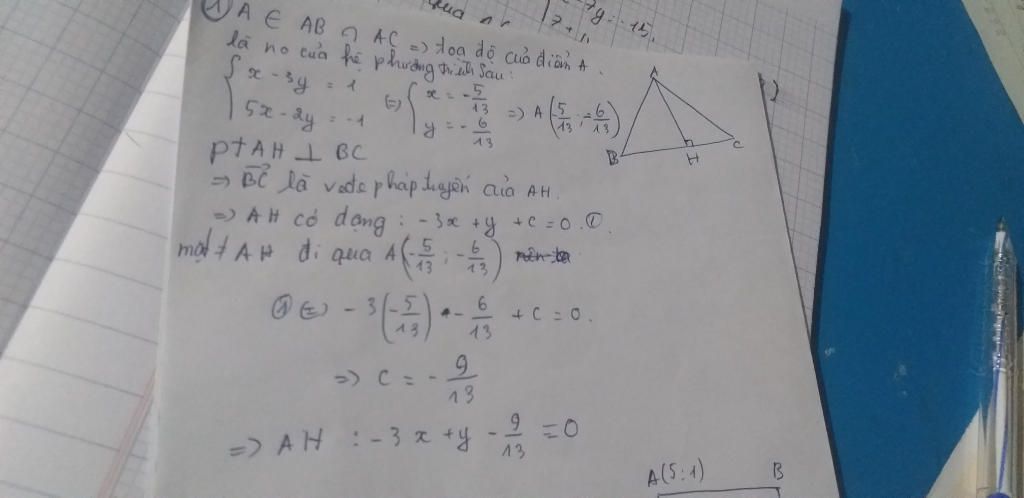 ① A ∈ AB ∩ AC => tọa độ của điểm A.
là no của hệ phương trình sau:
{ x - 3y = 1
5x - 2y = -1
<=> { x = -5/13
y = -6/13
=> A(-5/13 ; -6/13)
A
B
H
C
pt AH ⊥ BC
=> BC là vectơ pháp tuyến của AH.
=> AH có dạng: -3x + y + c = 0. ①.
mặt ≠ AH đi qua A(-5/13 ; -6/13)
① <=> -3(-5/13) - 6/13 + c = 0.
=> c = -9/13
=> AH : -3x + y - 9/13 = 0
A(5;1)
B